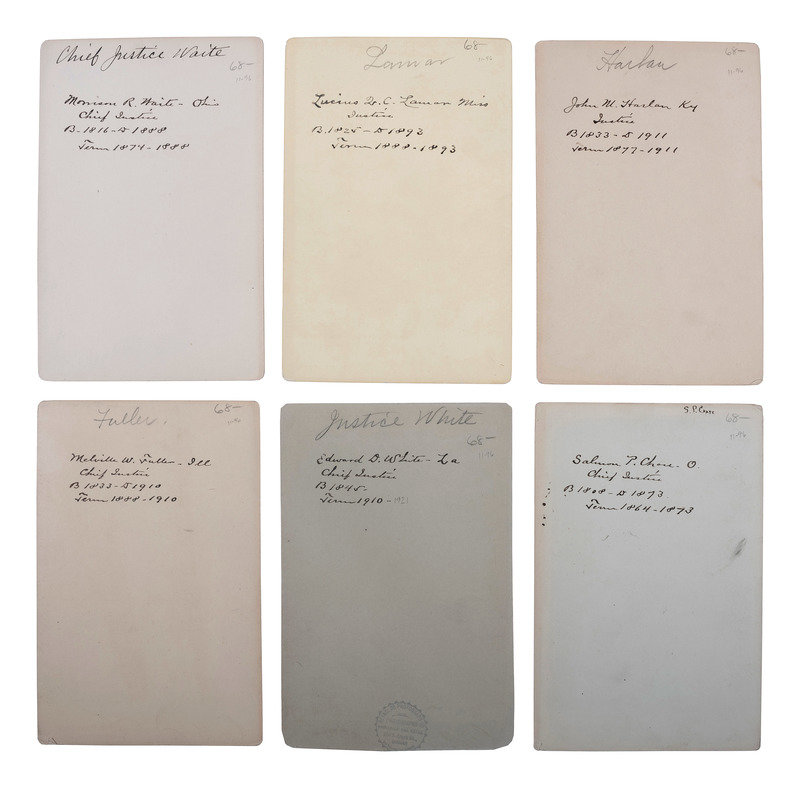 Chief Justice Waite
68-
11-96
Morrison R. Waite - Ohio
Chief Justice
B-1816-D1888
Term 1874-1888
Lamar
68-
11-96
Lucius Q. C. Lamar Miss
Justice
B.1825-D1893
Term 1888-1893
Harlan
68-
11-96
John M. Harlan Ky
Justice
B1833-D1911
Term 1877-1911
Fuller.
68-
11-96
Melville W. Fuller - Ill
Chief Justice
B1833-D1910
Term 1888-1910
Justice White
68-
11-96
Edward D. White - La
Chief Justice
B1845-
Term 1910-1921
S. P. Chase
68-
11-96
Salmon P. Chase - O.
Chief Justice
B1808-D1873
Term 1864-1873